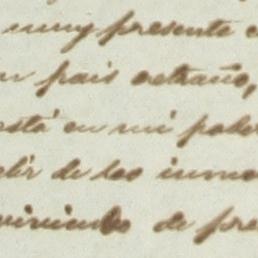 muy presente
pais extraño,
está en mi poder
de los
viviendo de pre